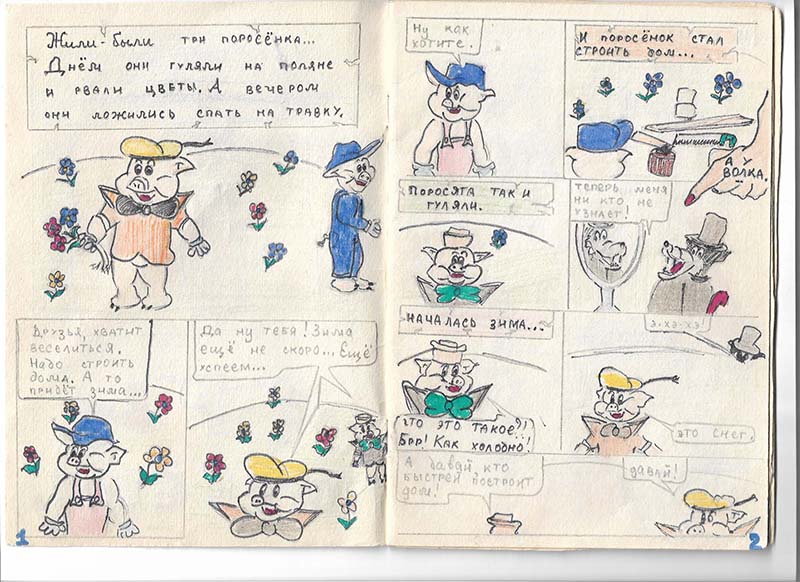 Жили-были три поросёнка...
Днём они гуляли на поляне
и рвали цветы. А вечером
они ложились спать на травку.
Друзья, хватит
веселиться.
Надо строить
дома. А то
придёт зима...
Да ну тебя! Зима
ещё не скоро... Ещё
успеем...
1
Ну как
хотите.
И поросёнок стал
строить дом...
А у
волка.
Поросята так и
гуляли.
Теперь меня
ни кто не
узнает!
Началась зима...
Э-хэ-хэ!
Что это такое?!
Брр! Как холодно!
Это снег.
А давай кто
быстрей построит
дом!
Давай!
2